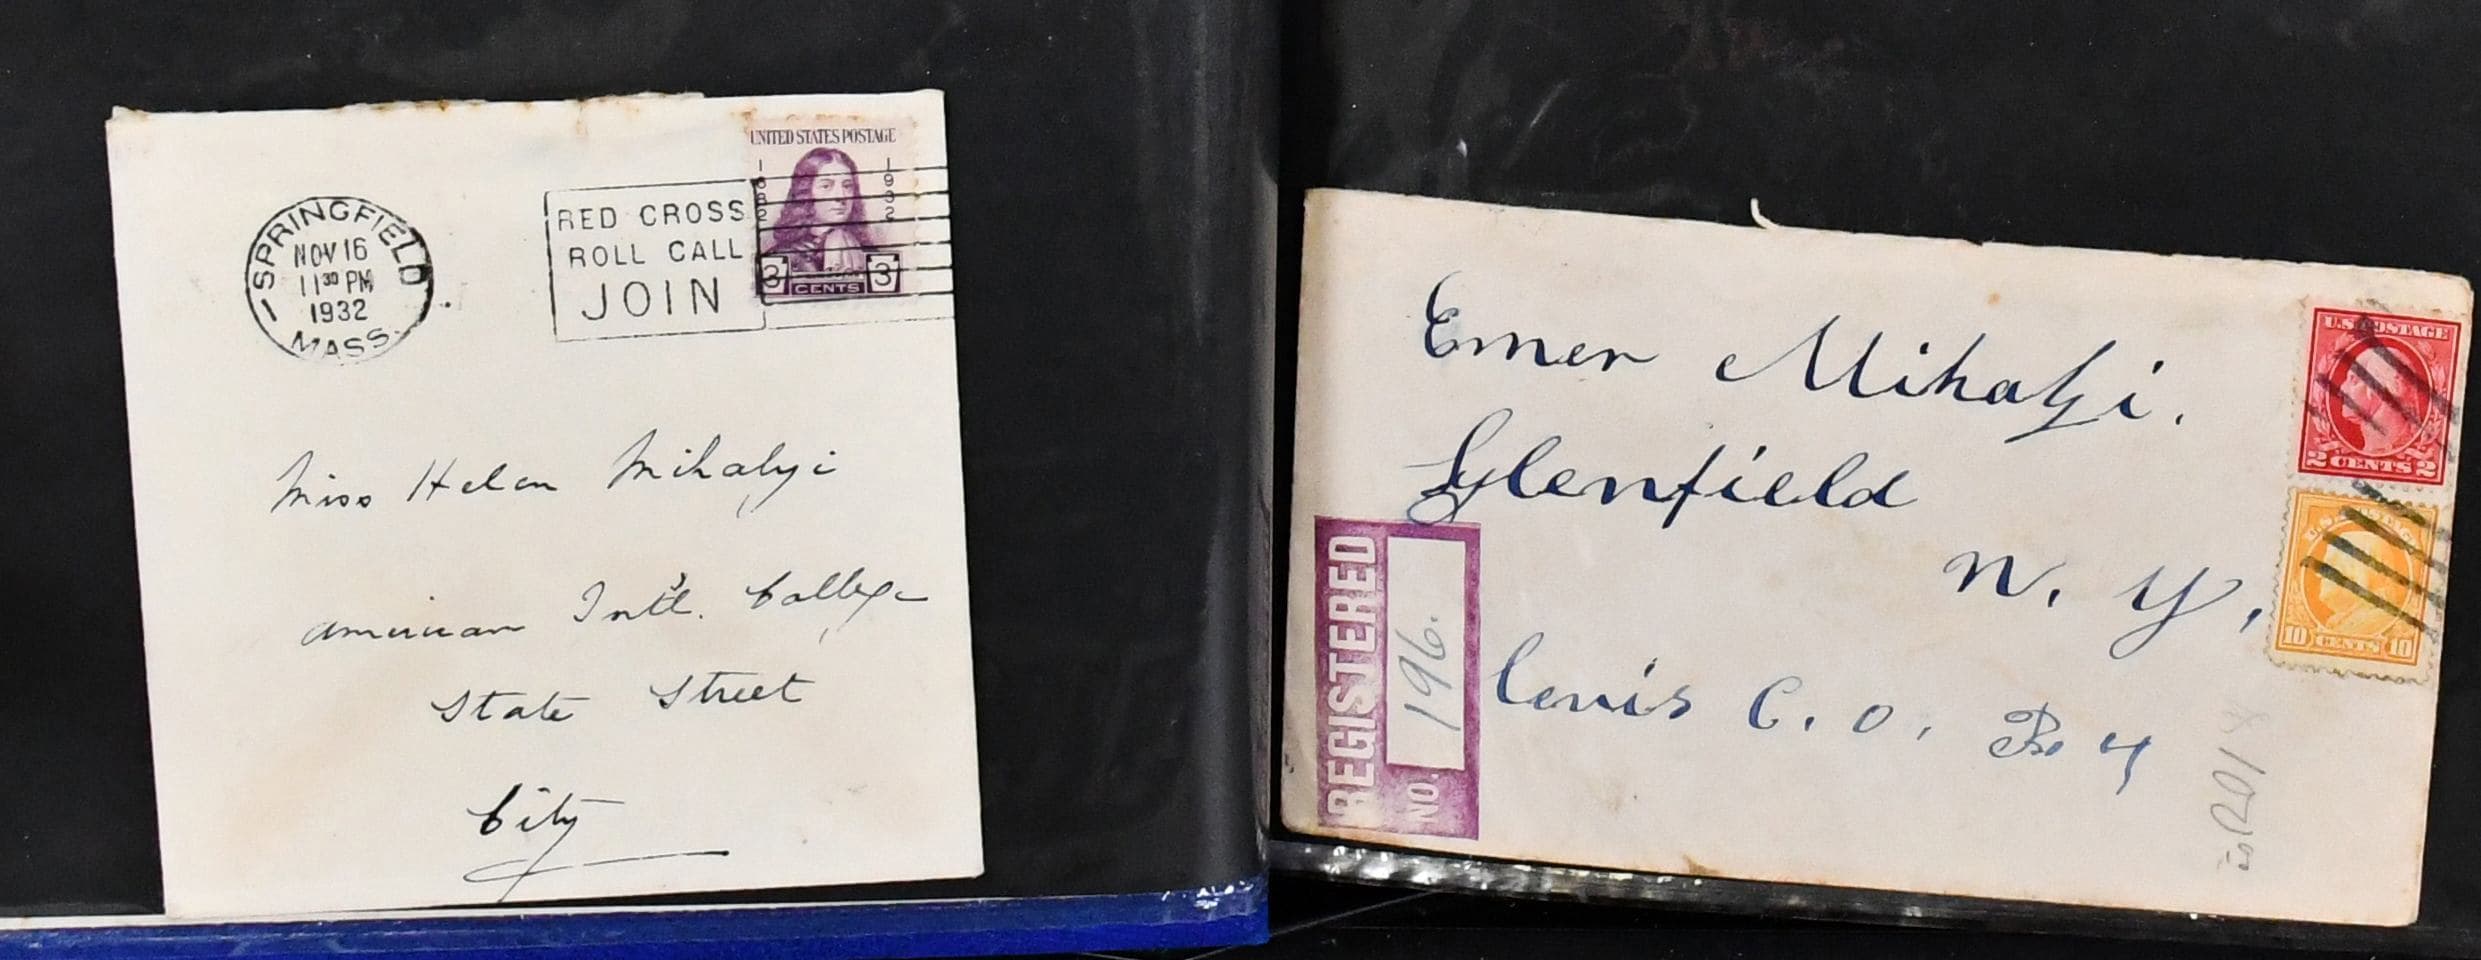 SPRINGFIELD
NOV 16
11 30 PM
1932
MASS.
RED CROSS
ROLL CALL
JOIN
UNITED STATES POSTAGE
1682 1932
3 CENTS 3
Miss Helen Mihalyi
American Int'l. College
State Street
City
Emer Mihalyi.
Glenfield
N. Y.
Lewis C. O.
REGISTERED
NO. 196.
U.S. POSTAGE
2 CENTS 2
U.S. POSTAGE
10 CENTS 10